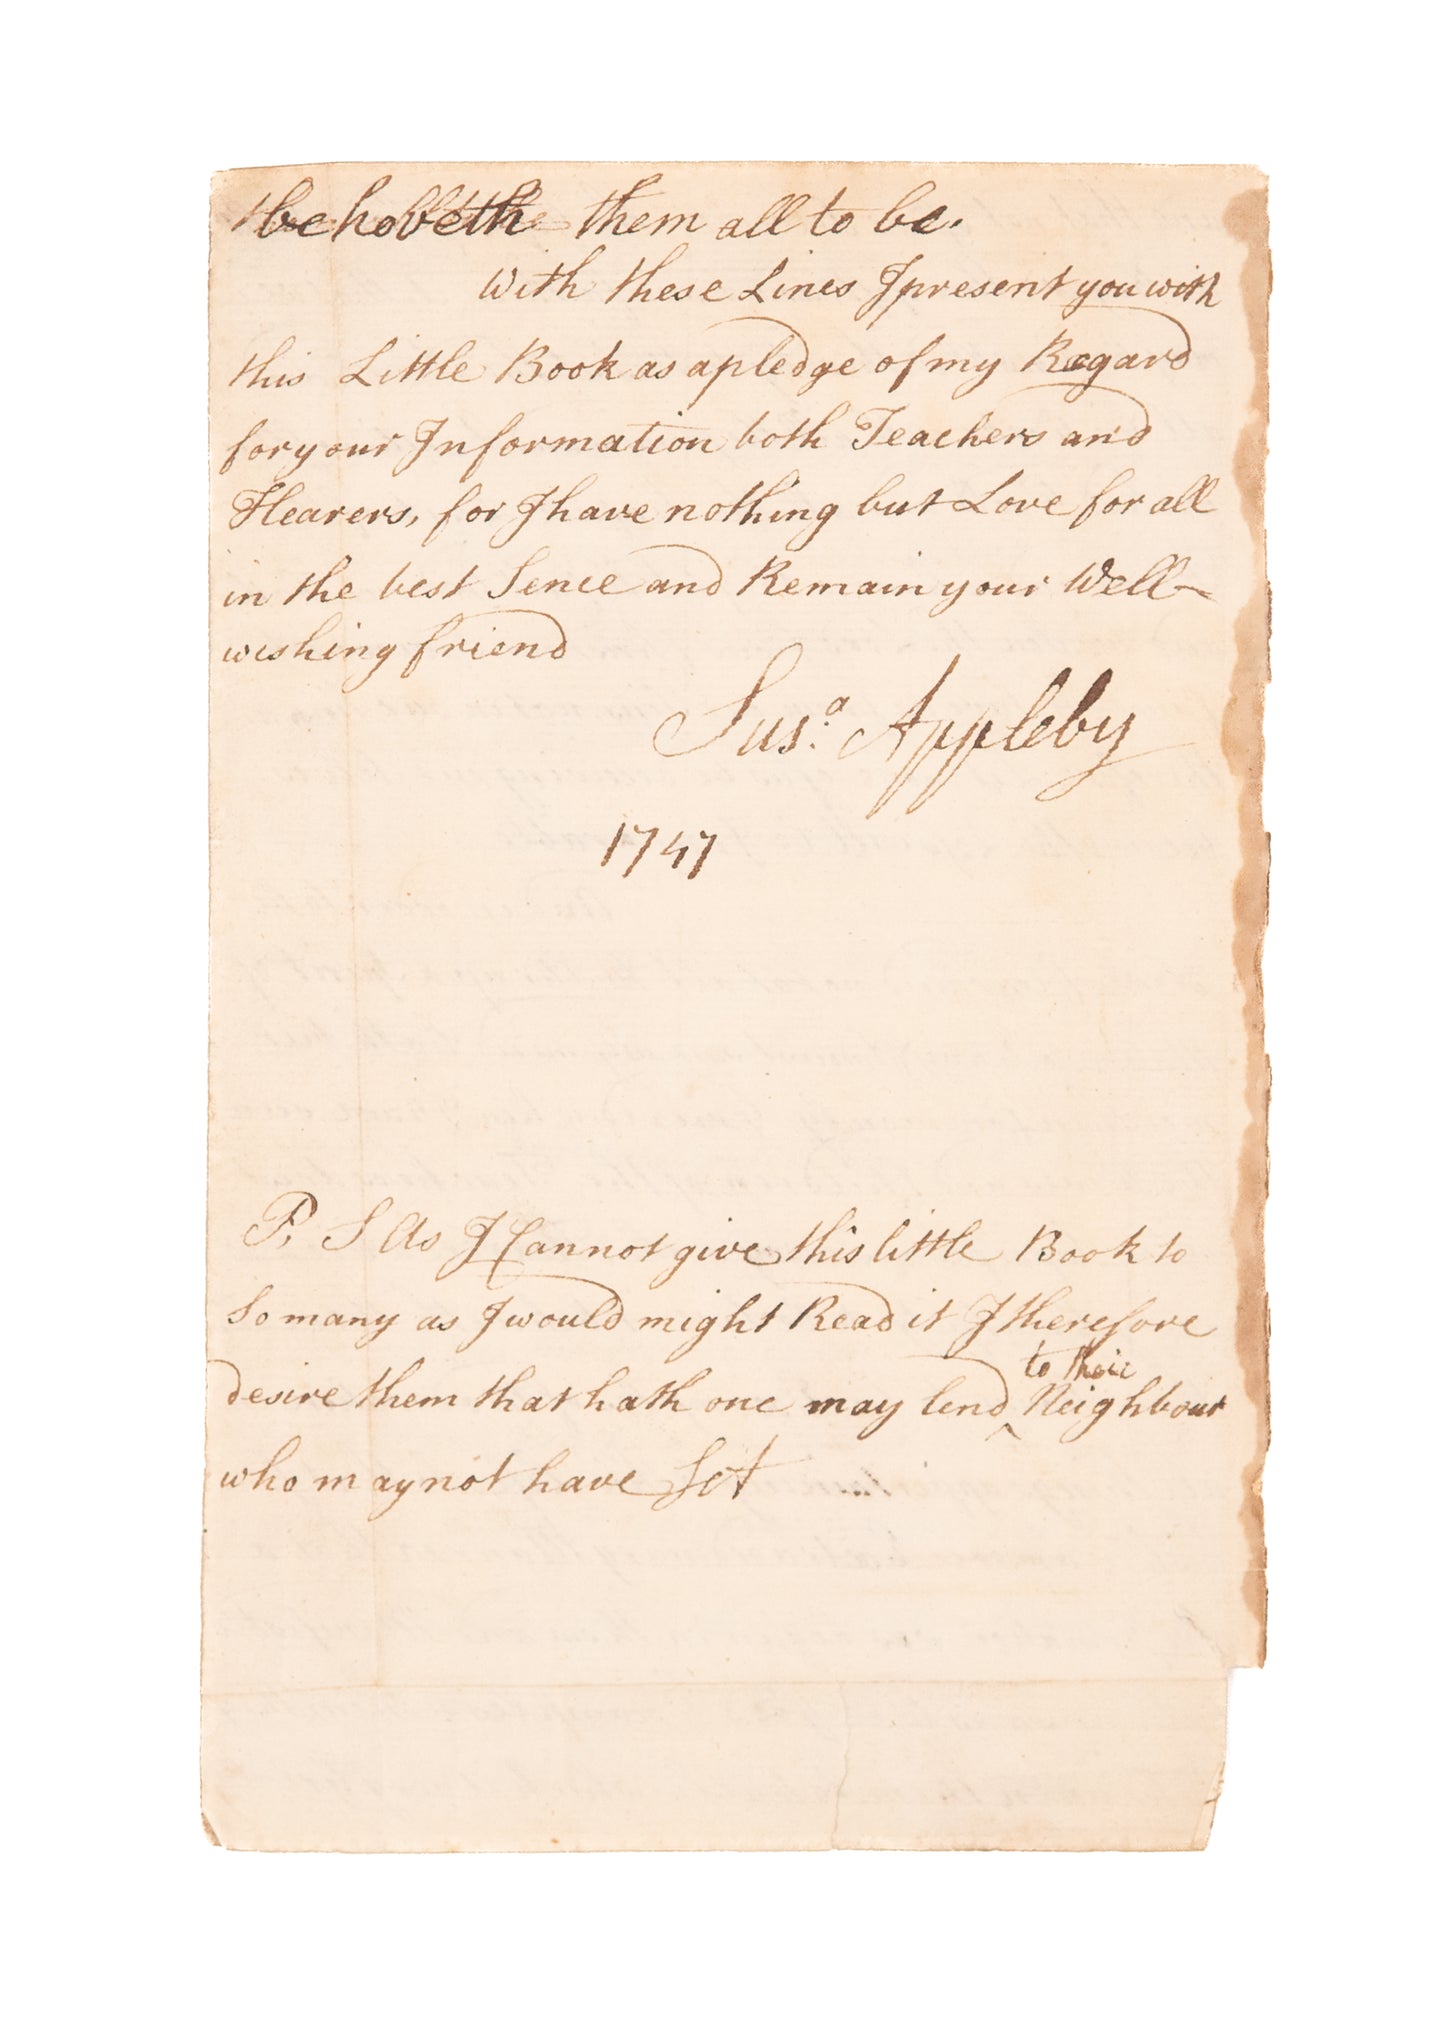 behoveth them all to be.
With these Lines I present you with
this Little Book as a pledge of my Regard
for your Information both Teachers and
Hearers, for I have nothing but Love for all
in the best Sence and Remain your Well-
wishing friend
Sus.a Appleby
1747
P, S As I Cannot give this little Book to
So many as I would might Read it I therefore
to their
desire them that hath one may lend ‸ Neighbour
who may not have